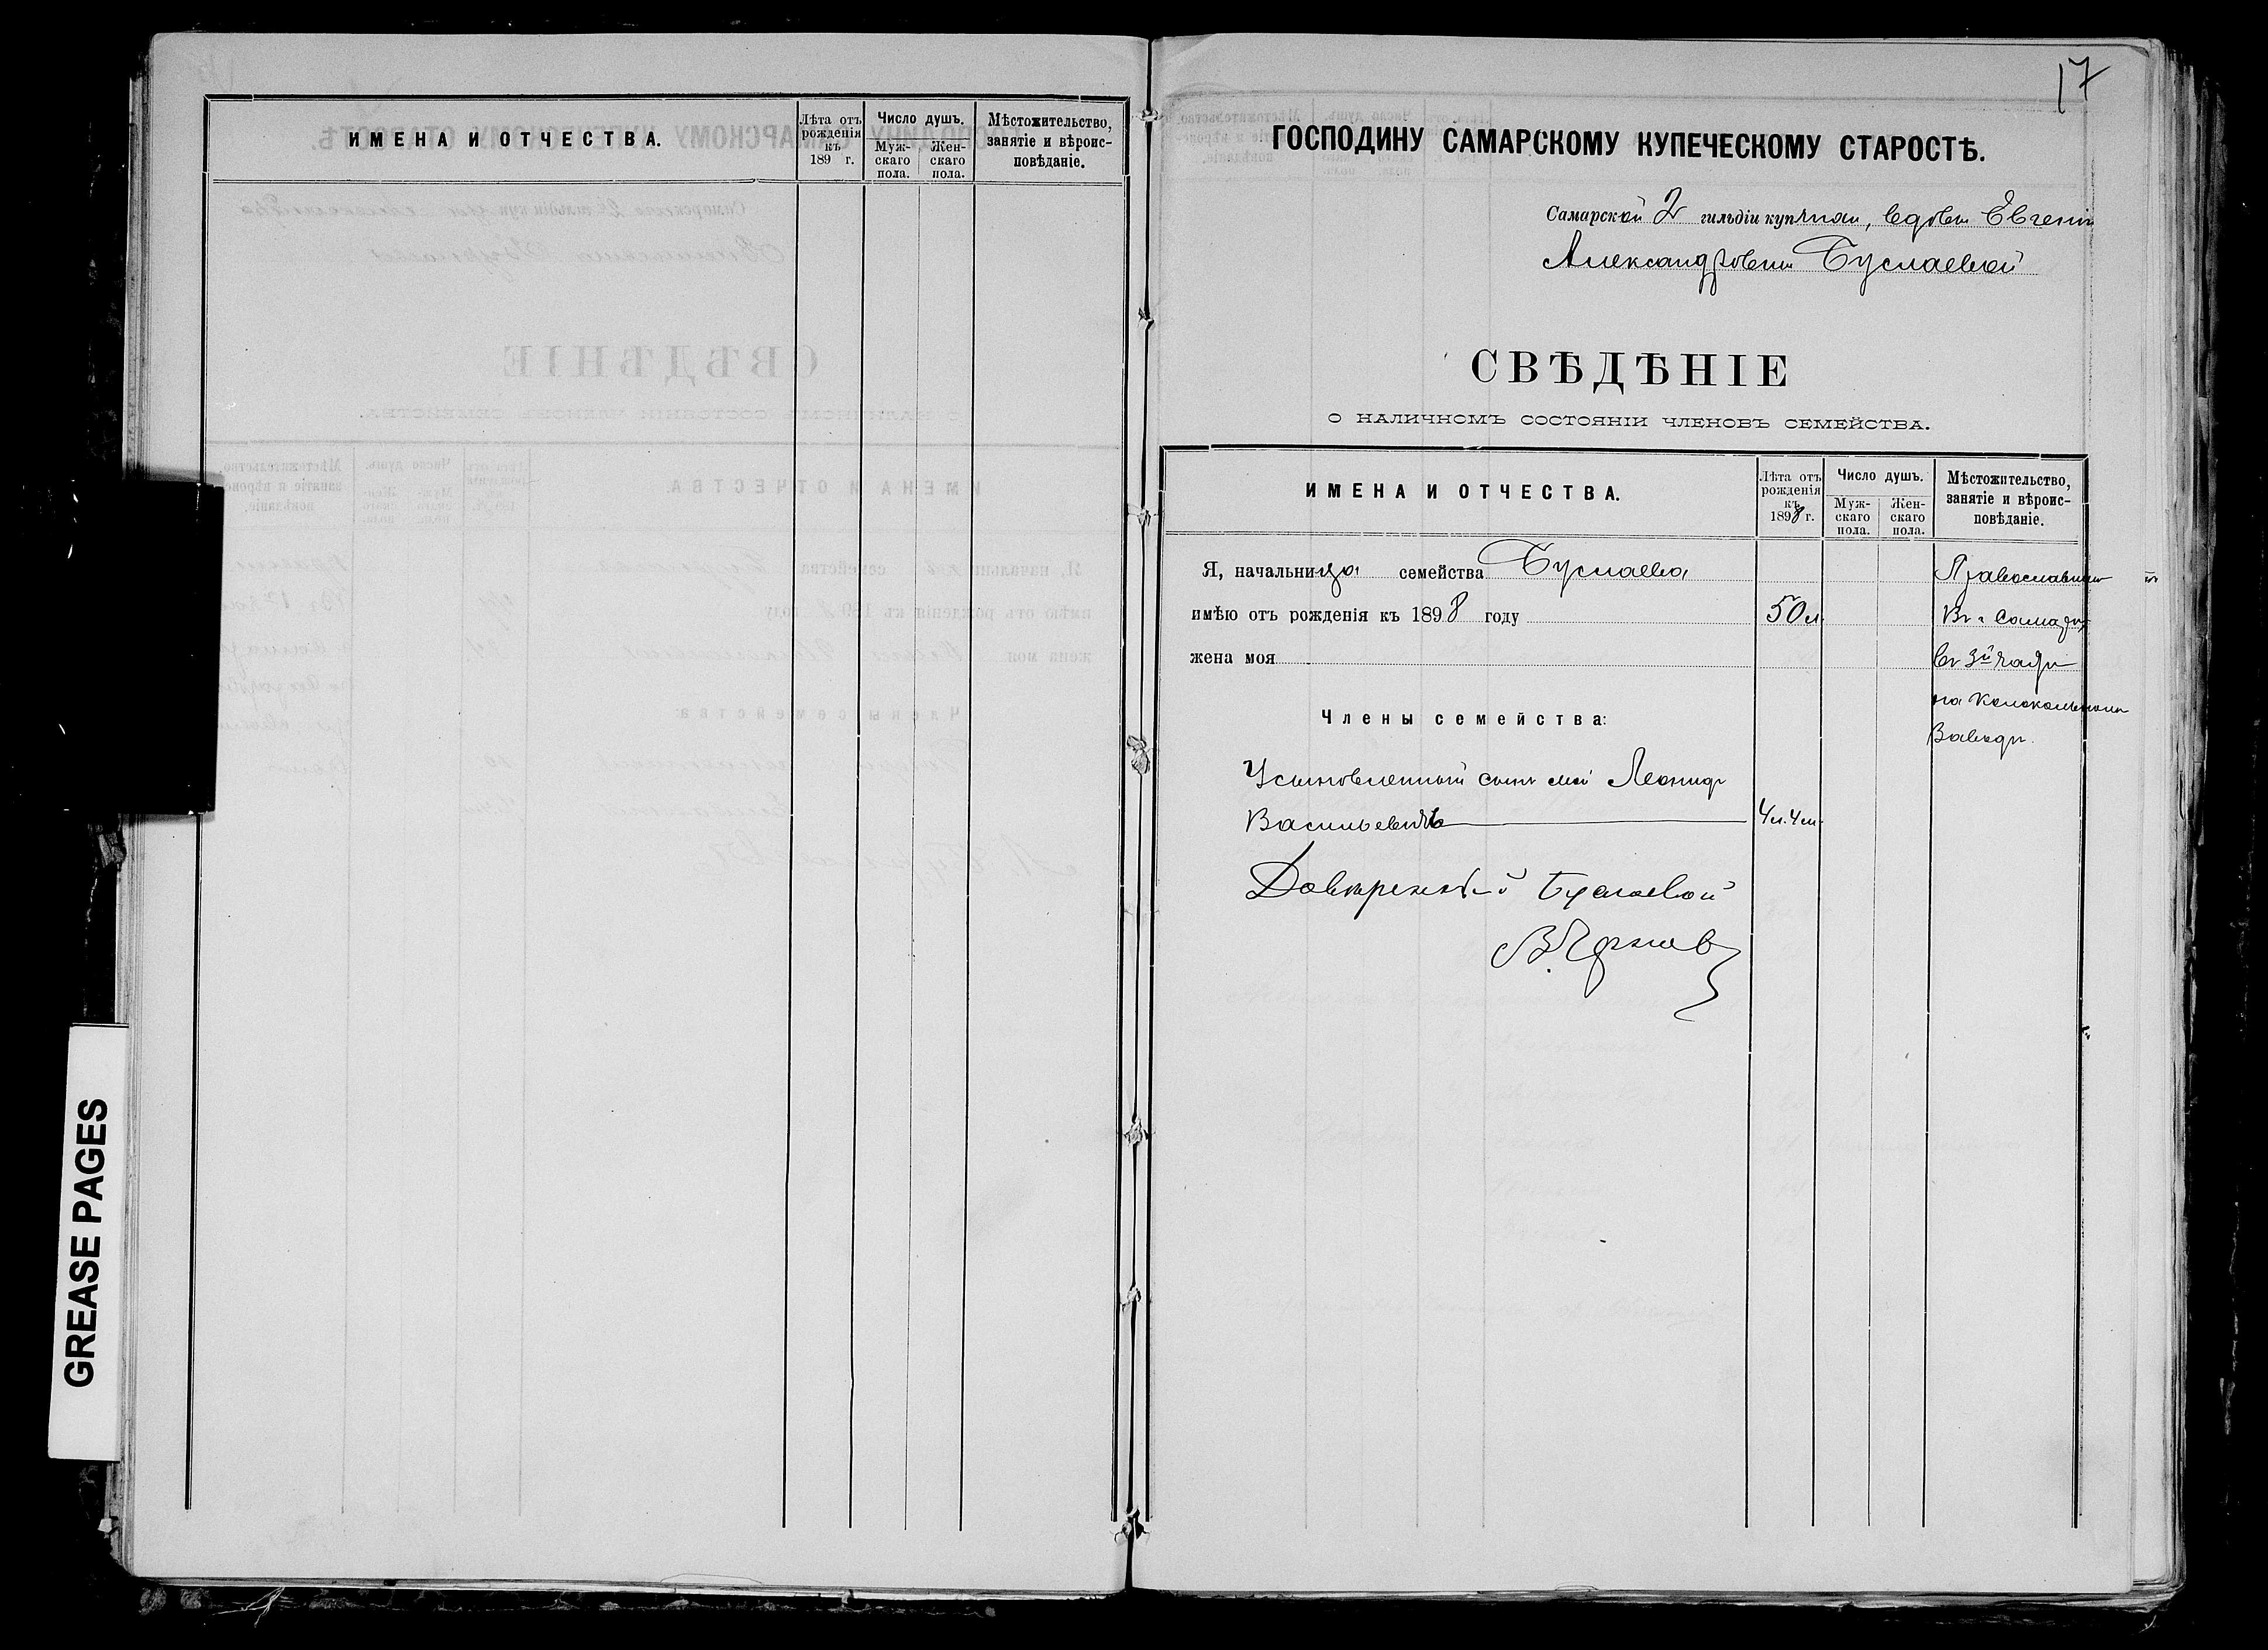 ИМЕНА И ОТЧЕСТВА.
Лѣта отъ рожденія къ 189 г.
Число душъ.
Мужскаго пола.
Женскаго пола.
Мѣстожительство, занятіе и вѣроисповѣданіе.
17
ГОСПОДИНУ САМАРСКОМУ КУПЕЧЕСКОМУ СТАРОСТѢ.
Самарской 2 гильдіи купчихи, вдовы Евгеніи
Александровны Буслаевой
СВѢДѢНІЕ
О НАЛИЧНОМЪ СОСТОЯНІИ ЧЛЕНОВЪ СЕМЕЙСТВА.
ИМЕНА И ОТЧЕСТВА.
Лѣта отъ
рожденія
къ
1898 г.
Число душъ.
Муж-
скаго
пола.
Жен-
скаго
пола.
Мѣстожительство,
занятіе и вѣроис-
повѣданіе.
Я, начальница семейства Буслаева
Православная
имѣю отъ рожденія къ 1898 году 50 л.
Въ г. Самарѣ
жена моя
въ 3й части
Члены семейства:
на Колокольномъ
Заводѣ.
Усыновленный сынъ мой Леонидъ
Васильевичъ 4 л. 4 м.
Довѣренный Буслаевой
GREASE PAGES